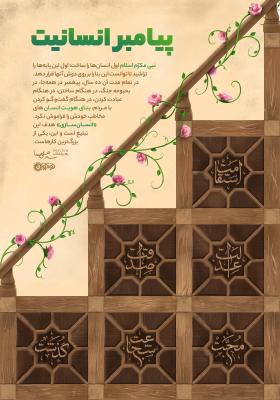 پیامبر انسانیت
نبی مکرّم اسلام اول انسان‌ها را ساخت؛ اول این پایه‌ها را
تراشید تا توانست این بنا را بر روی دوش آنها قرار دهد.
در تمام مدت آن ده سال، پیغمبر در همه‌جا، در
بحبوحه جنگ، در هنگام ساختن، در هنگام
عبادت کردن، در هنگام گفت‌و‌گو کردن
با مردم، بنای هویت انسان های
مخاطب خودش را فراموش نکرد.
«انسان‌سازی» هدف این
تبلیغ است و این، یکی از
بزرگ‌ترین کارهاست.
استقامت
صداقت
عدالت
گذشت
شجاعت
محبت